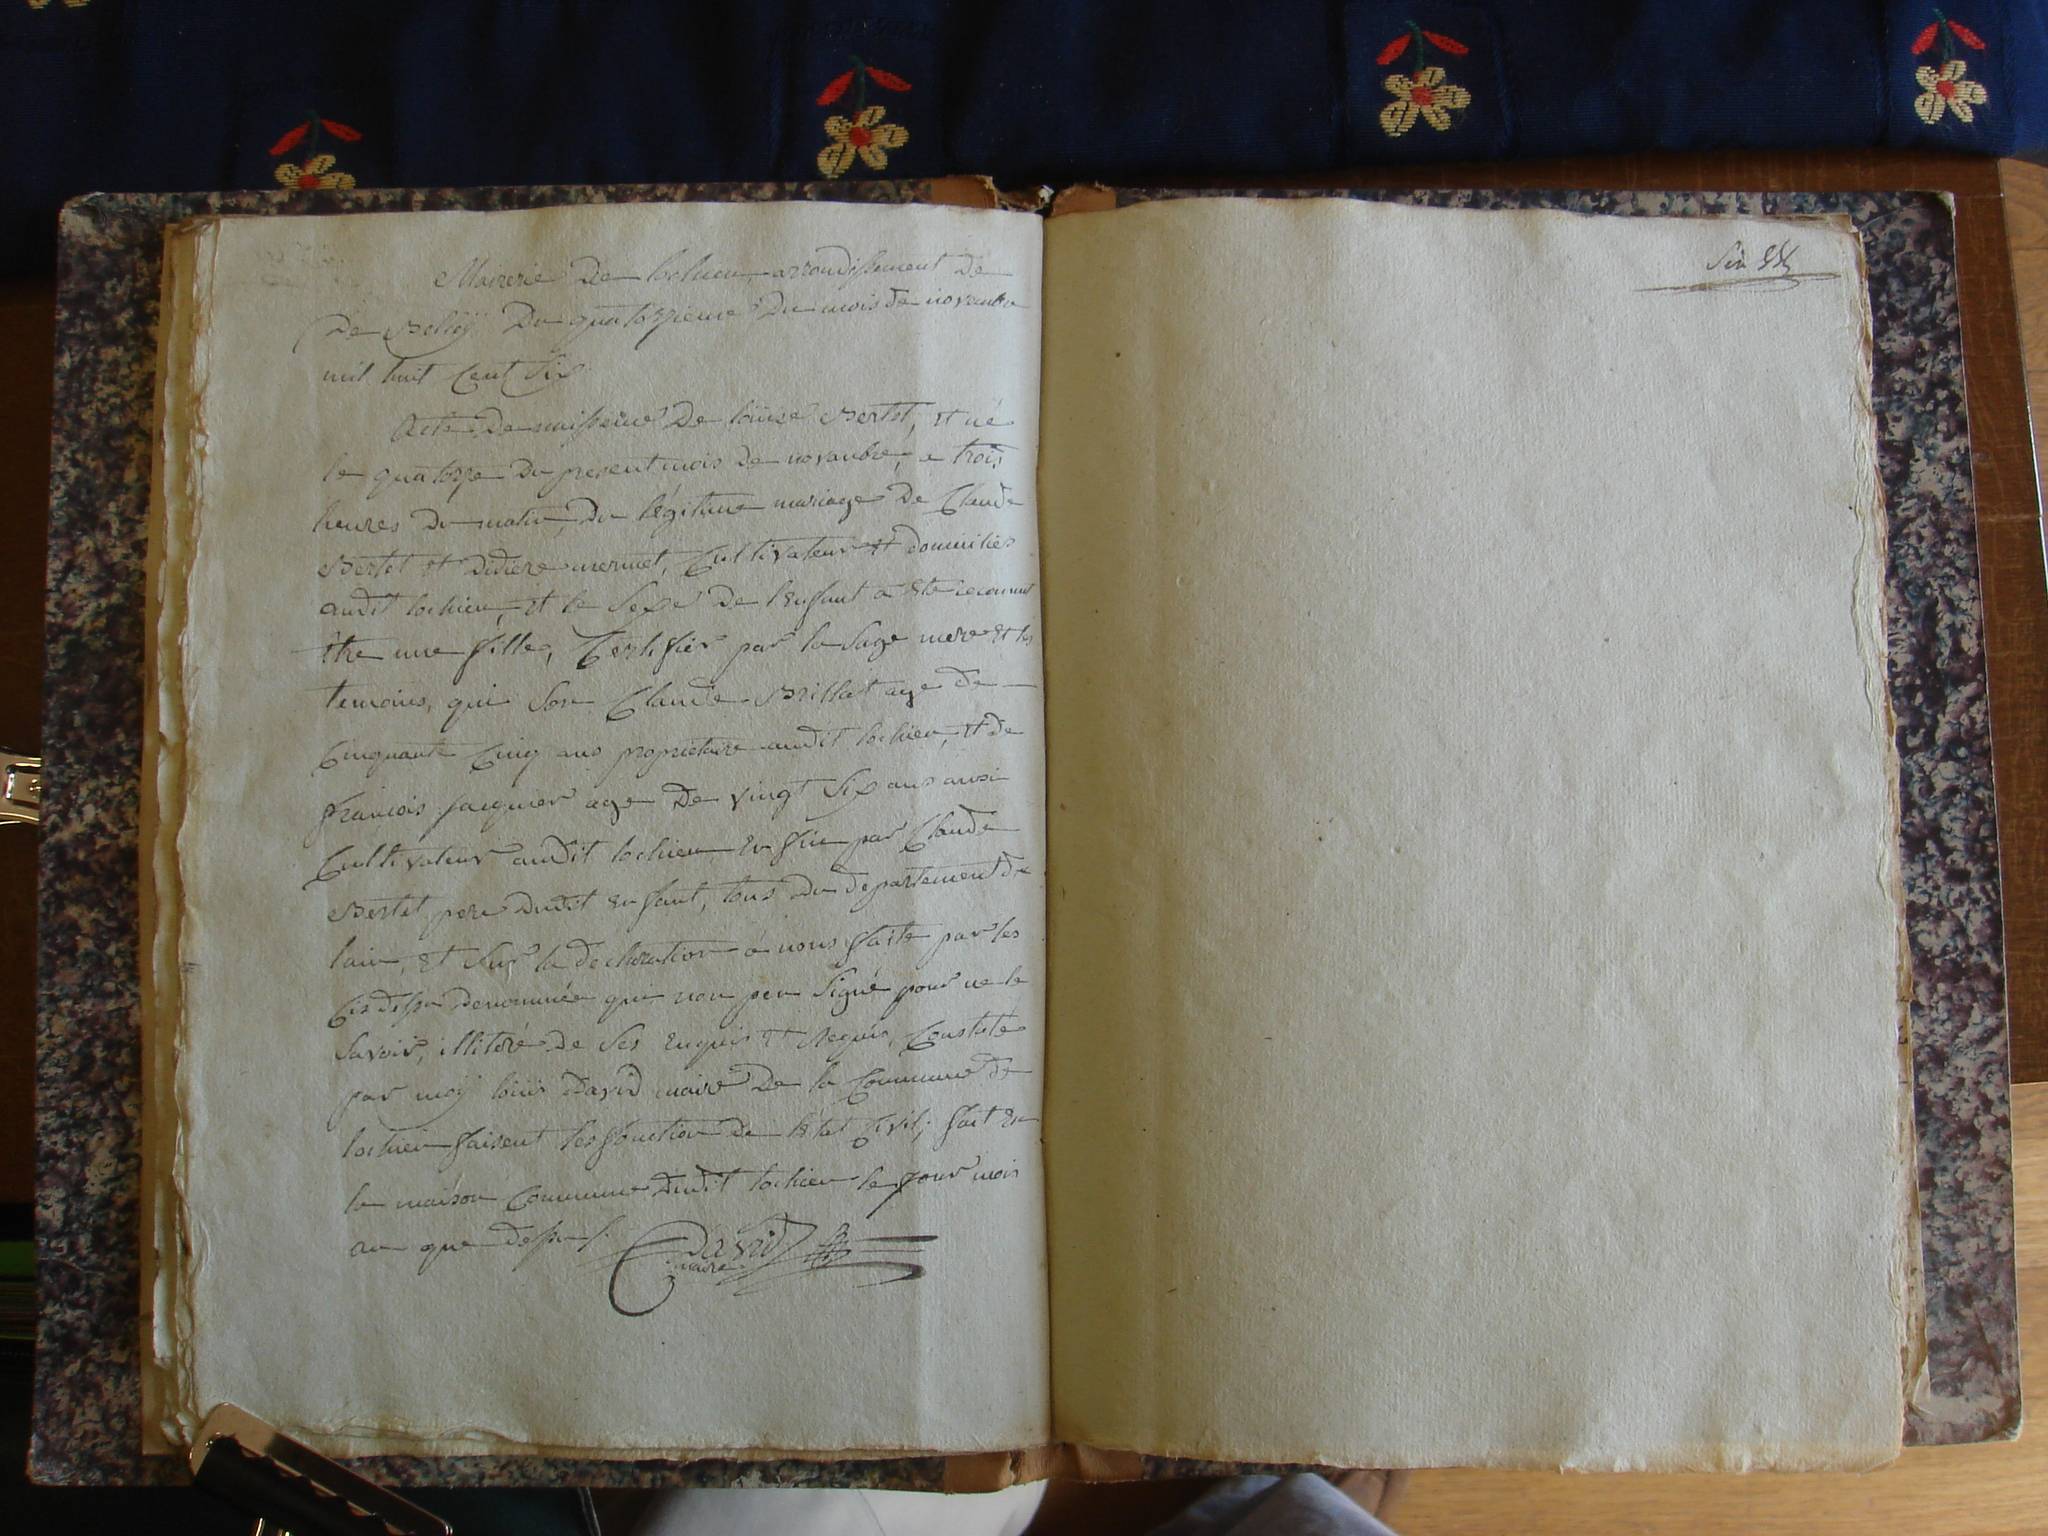 Mairerie De lochieu arrondissement De
De Belleÿ Du quatorzieme Du mois de novanbre
mil huit Cent Six
Acte De naissence De loüise Bertet, et né
le quatorze Du present mois de novanbre, a trois
heures Du matin, Du légitime mariage De Claude
Bertet et Didiere mermet, Cultivateur et domiciliés
audit lochieu, et le Sexe De l'enfant a été reconnut
être une fille, Certifier par la Sage mere et les
temoins, qui Son Claude Brillat age de
Cinquante Cinq ans propriétaire audit lochieu, et de
françois jacquier age De vingt Six ans ausi
Cultivateur audit lochieu En fin par Claude
Bertet pere Dudit enfant, tous Du departement de
lain, et Sur la declaration a nous faite par les
Cis dessu denommée qui non peu Signé pour ne le
Savoir, illitéré de Ses enquis et Requis, Constaté
par moÿ loüis David maire De la Commune de
lochieu faisent les fonction de l'état Civil; fait en
la maison Commune Dudit lochieu le jour mois
an que dessus.
David
maire